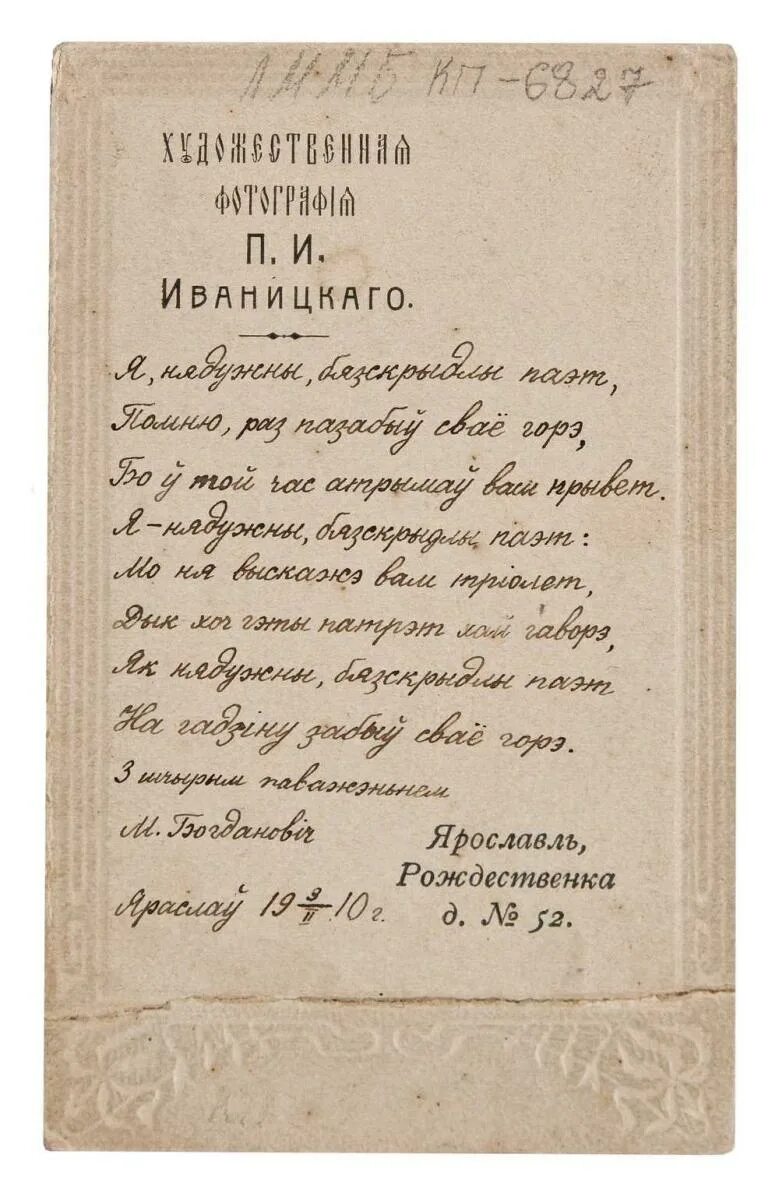 ЛММБ КП-6827
ХУДОЖЕСТВЕННАЯ
ФОТОГРАФІЯ
П. И.
ИВАНИЦКАГО.
Я, нядужны, бязскрыдлы паэт,
Помню, раз пазабыў сваё горэ,
Бо ў той час атрымаў вам прывет.
Я – нядужны, бязскрыдлы паэт:
Мо ня выскажэ вам тріолет,
Дык хоч гэты патрэт хай гаворэ,
Як нядужны, бязскрыдлы паэт
На гадзіну забыў сваё горэ.
З шчырым паважэньнем
М. Богдановіч
Яраслаў 19 9/II 10 г.
Ярославль,
Рождественка
д. № 52.